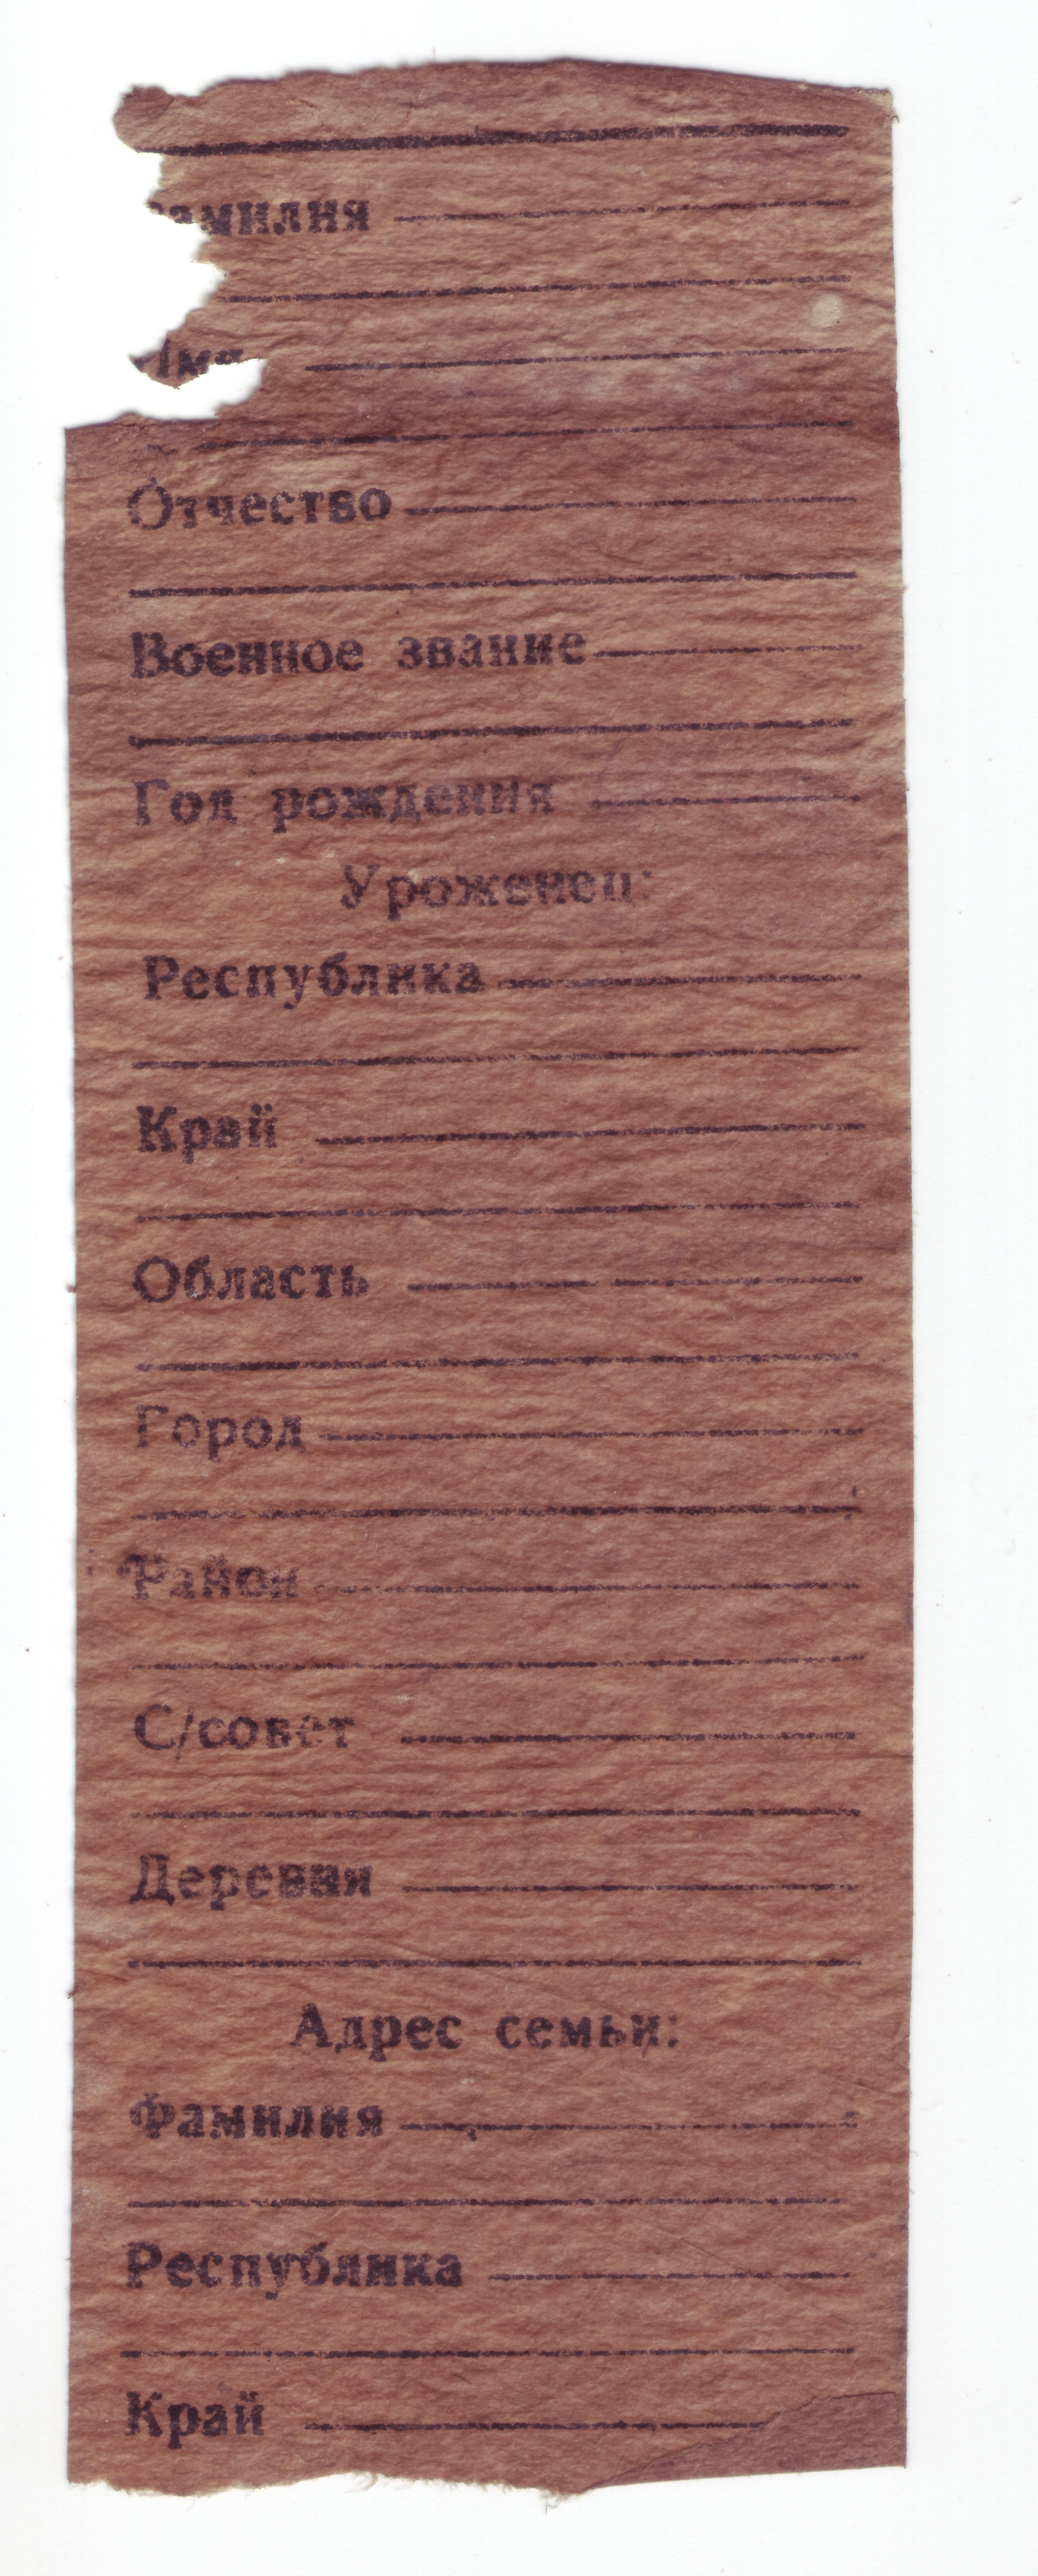 Фамилия
Имя
Отчество
Военное звание
Год рождения
Уроженец:
Республика
Край
Область
Город
Район
С/совет
Деревня
Адрес семьи:
Фамилия
Республика
Край